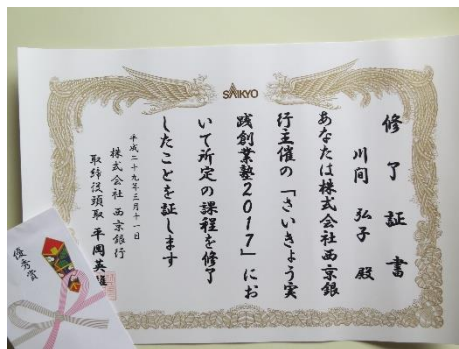 SAIKYO
修了証書
川間 弘子 殿
あなたは株式会社西京銀
行主催の「さいきょう実
践創業塾2017」にお
いて所定の課程を修了
したことを証します
平成二十九年三月十一日
株式会社 西京銀行
取締役頭取 平岡英雄
優秀賞